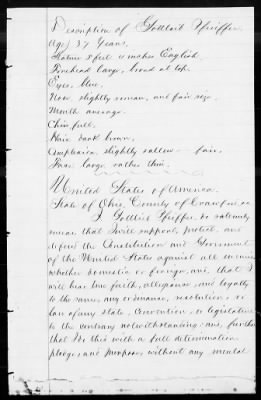 Description of Gottleib Pfeiffer
Age 37 Years.
Stature 5 feet 11 inches English
Forehead large, broad at top.
Eyes blue.
Nose slightly roman, and fair size.
Mouth average.
Chin full,
Hair dark brown,
Complexion slightly sallow — fair,
Face large rather thin.
United States of America.
State of Ohio, County of Crawford, ss
I Gottlieb Pfeiffer, do solemnly
swear that I will support, protect, and
defend the Constitution and Government
of the United States against all enemies
whether domestic or foreign, and that I
will bear true faith, allegiance and loyalty
to the same, any ordinance, resolution, or
law of any state, Convention, or legislature
to the contrary notwithstanding: and, further
that I do this with a full determination
pledge, and purpose, without any mental